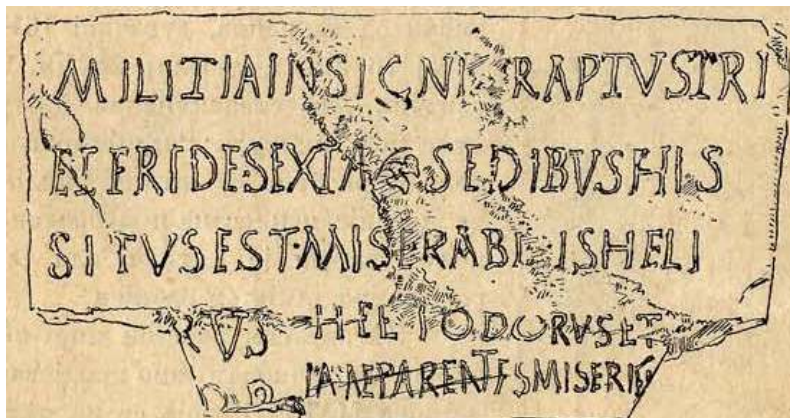 MILITIA INSIGNI RAPTVS TRI
SEDIBVS HIS
SITVS EST·MISERABILIS HELI
VS HELIODORVS ET
PARENTES MISERI